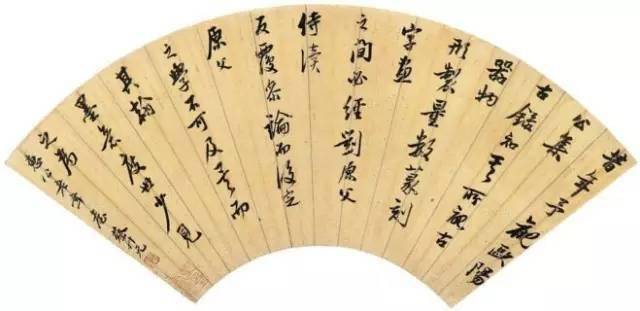 昔年予觀歐陽
公集
古錄知其所視古
器物
形製量數篆刻
字畫
之間必經劉原父
侍讀
反覆參論而後定
原父
之學不可及矣而
其翰
墨 世少見
之